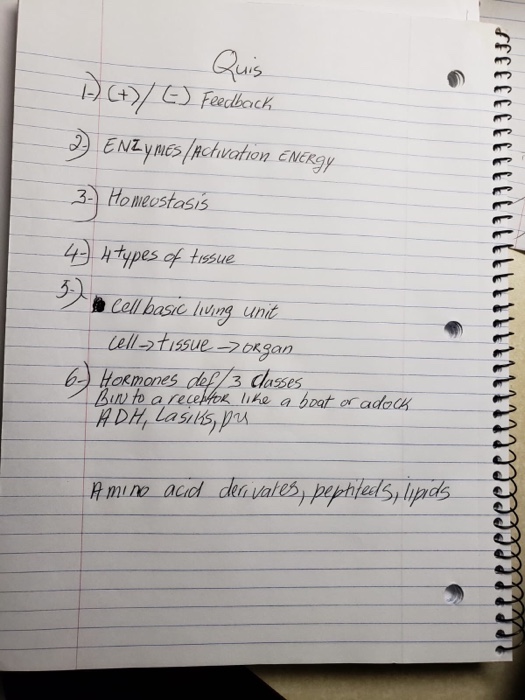 Quis
1-) (+)/ (-) Feedback
2-) ENZymes/Activation ENERgy
3-) Homeostasis
4-) 4 types of tissue
5-)
cell basic living unit
cell → tissue → organ
6-) Hormones def/3 classes
Bin to a receptor like a boat or adock
ADH, Lasiks, pu
Amino acid derivates, peptiteds, lipids